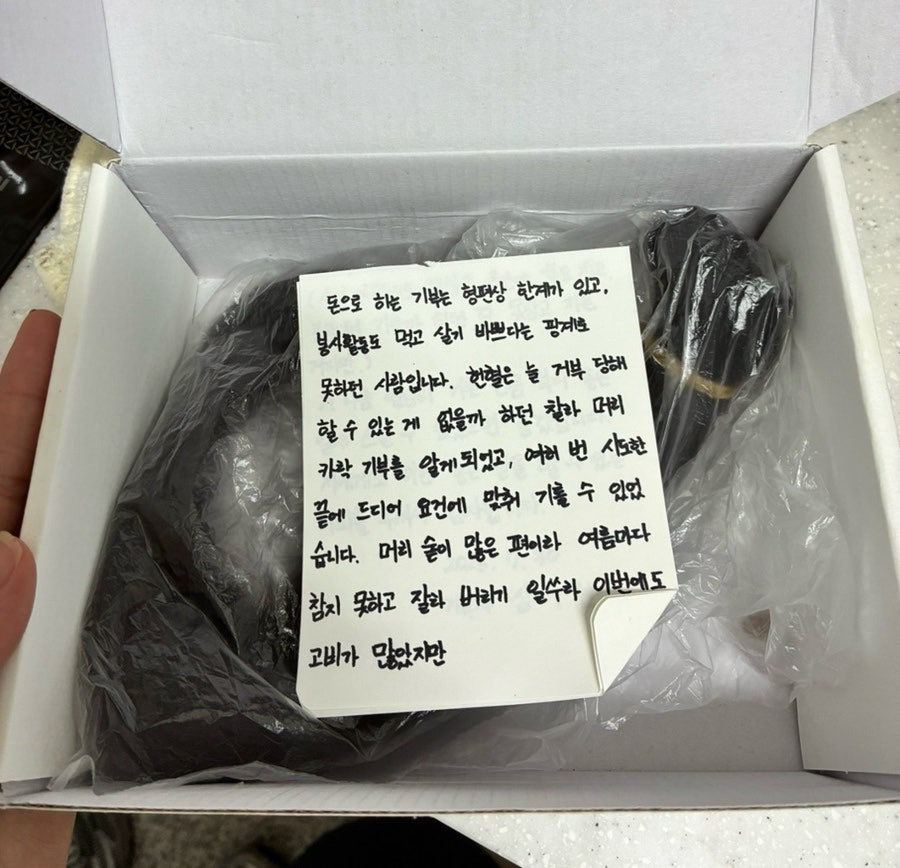 돈으로 하는 기부는 형편상 한계가 있고,
봉사활동도 먹고 살기 바쁘다는 핑계로
못하던 사람입니다. 헌혈은 늘 거부 당해
할 수 있는 게 없을까 하던 찰라 머리
카락 기부를 알게 되었고, 여러 번 시도한
끝에 드디어 요건에 맞춰 기를 수 있었
습니다. 머리 숱이 많은 편이라 여름마다
참지 못하고 잘라 버리기 일쑤라 이번에도
고비가 많았지만